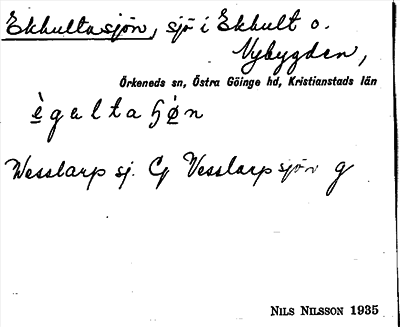 Ekhultasjön, sjö i Ekhult o.
Nybygden,
Örkeneds sn, Östra Göinge hd, Kristianstads län
è g u l t a ɧ ø̀ n
Wesslarp sj. Cg Vesslarpsjön g
NILS NILSSON 1935